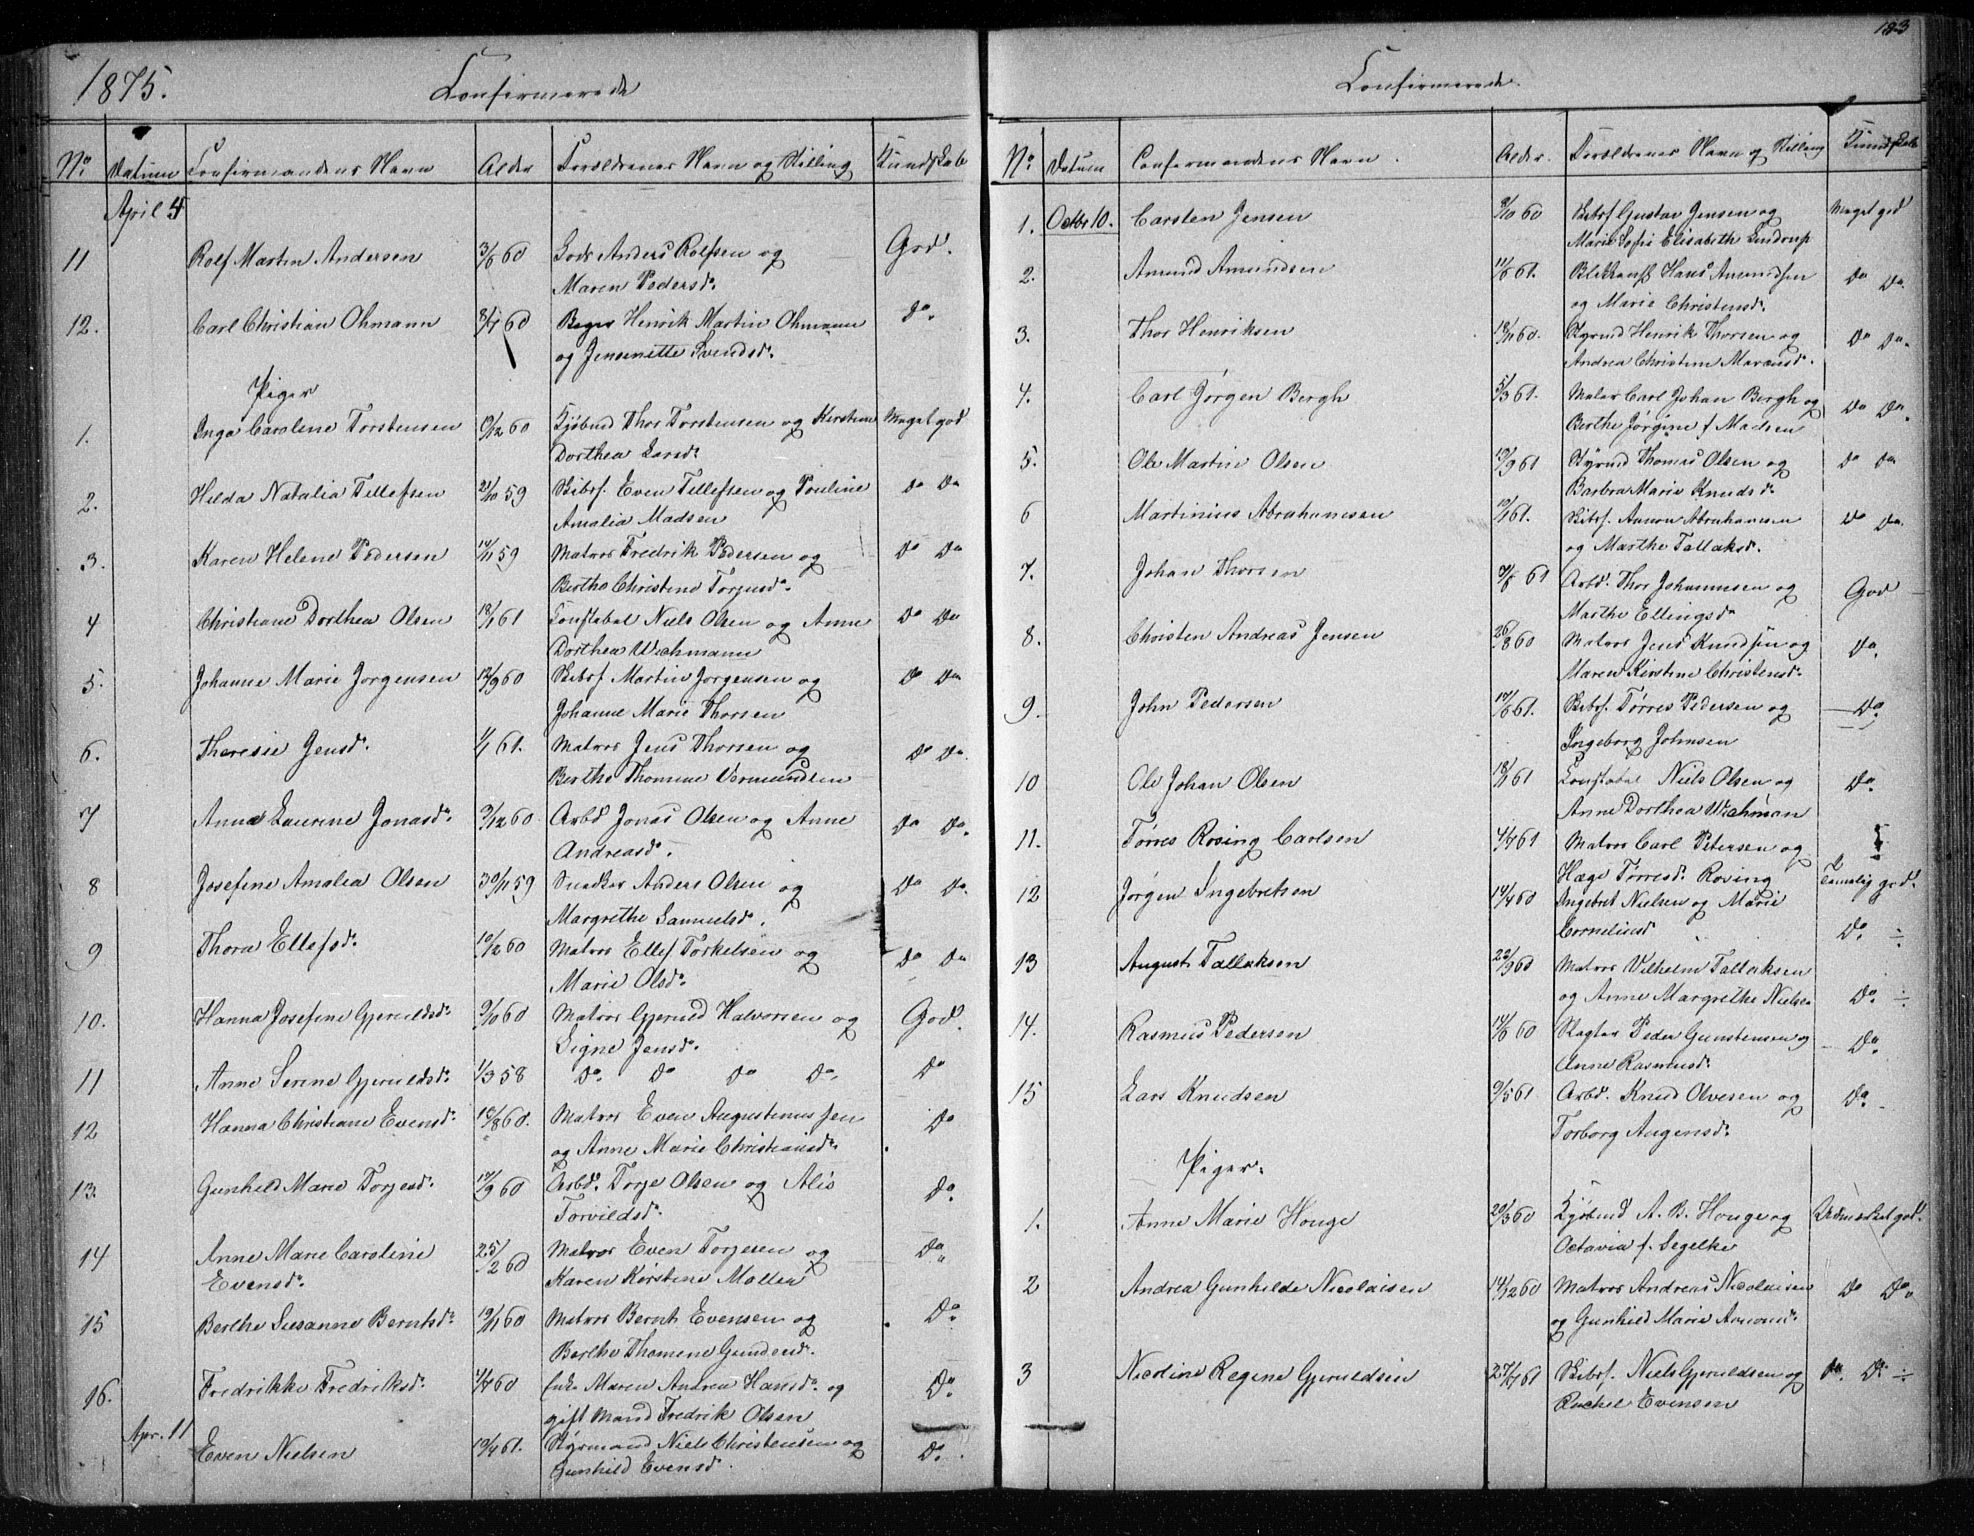 1875.
Confirmerede
No Datum Confirmandens Navn Alder Forældrenes Navn og Stilling Kundskab
April 4
11 Rolf Martin Andersen 3/6 60 Lods Anders Rolfsen og God.
Maren Pedersd.
12. Carl Christian Ohmann 8/4 60 Bager Henrik Martin Ohmann Do.
og Jensinette Svendsd.
Piger
1. Inga Caroline Torstensen 19/12 60 Kjøbmd Thor Torstensen og Kirstine Meget god
Dorthea Larsd.
2. Hilda Natalia Tellefsen 21/10 59 Skibsf. Even Tellefsen og Pouline Do Do
Amalia Madsen
3. Karen Helene Pedersen 14/11 59 Matros Fredrik Pedersen og Do Do
Berthe Christine Torjusd.
4 Christiane Dorthea Olsen 18/1 61 Constabel Niels Olsen og Anne Do Do
Dorthea Wichmann
5. Johanne Marie Jorgensen 12/9 60 Skibsf Martin Jorgensen og Do Do
Johanne Marie Thorsen
6. Theresie Jensd. 1/1 61. Matros Jens Thorsen og Do Do.
Berthe Thomine Vermundsen
7 Anna Laurine Jonasd. 3/12 60 Arbd Jonas Olsen og Anne Do Do.
Andreasd.
8 Josefine Amalia Olsen 30/11 59 Snedker Anders Olsen og Do Do.
Margrethe Samuelsd.
9 Thora Ellefsd. 10/2 60 Matros Ellef Torkelsen og Do Do
Marie Olsd.
10. Hanna Josefine Gjeruldsd. 9/10 60 Matros Gjeruld Halvorsen og God.
Signe Jensd.
11 Anne Serine Gjeruldsd. 1/3 58 Do. Do Do Do. Do
12 Hanna Christiane Evensd. 18/8 60. Matros Even Augustinussen Do
og Anne Marie Christiansd.
13. Gunhild Marie Torjesd. 17/9 60 Arbd. Torje Olsen og Alis Do.
Torvildsd.
14 Anne Marie Caroline 25/2 60 Matros Even Torjesen og Do
Evensd. Karen Kirstine Moller
15 Berthe Susanne Berntsd. 19/11 60 Matros Bernt Evensen og Do
Berthe Thomine Gundersd.
16. Fredrikke Fredriksd. 4/4 60 Enke Maren Andrea Hansd. og Do.
gift Mand Fredrik Olsen
Apr. 11 Even Nielsen 19/4 61. Styrmand Niels Christensen og Do.
Gunhild Evensd.
183
Confirmerede.
No Datum Confirmandens Navn. Alder. Forældrenes Navn og Stilling Kundskab
1. Octbr 10. Carsten Jensen 9/10 60 Skibsf Gustav Jensen og Meget god
Marie Sofie Elisabeth Lindrup
2. Amund Amundsen 11/6 61. Hans Amundsen Do Do.
og Marie Christensd.
3. Thor Henriksen 18/11 60. Styrmd Henrik Thorsen og Do Do.
Andrea Christine Marcusd.
4. Carl Jørgen Bergh 5/3 61. Maler Carl Johan Bergh og Do Do.
Berthe Jørgine f Madsen
5. Ole Martin Olsen 13/9 61 Styrmd Thomas Olsen og Do Do
Barbra Marie Knudsd.
6 Martinius Abrahamsen 12/1 61. Skibsf. Aanon Abrahamsen Do Do.
og Marthe Tallaksd.
7. Johan Thorsen 7/8 61 Arbd. Thor Johannesen og God
Marthe Ellingsd.
8. Christen Andreas Jensen 26/8 60 Matros Jens Knudsen og Do.
Maren Kirstine Christensd.
9. John Pedersen 17/6 61. Skibsf. Tørres Pedersen og Do.
Ingeborg Johnsen
10 Ole Johan Olsen 18/1 61 Constabel Niels Olsen og Do.
Anne Dorthea Wichman
11. Tørres Rosing Carlsen 4/7 61 Matros Carl Petersen og
Hæge Tørresd. Rosing Temelig god.
12 Jørgen Ingebretsen 14/4 60 Ingebret Nielsen og Marie
Corneliusd Do. ÷
13 August Tallaksen 22/9 60 Matros Vilhelm Tallaksen
og Anne Margrethe Nielsen Do. ÷
14. Rasmus Pedersen 14/6 60 Slagter Peder Gunstensen og Do.
Anne Rasmusd.
15 Lars Knudsen 9/5 61 Arbd. Knud Olvesen og Do.
Torborg Augensd.
Piger.
1. Anne Marie Houge 20/3 60 Kjøbmd A. B. Houge og Udmærket god.
Octavia f. Segelke
2 Andrea Gunhilde Nicolaisen 14/12 60 Matros Andreas Nicolaisen Do Do.
og Gunhild Marie
3 Nicoline Regine Gjeruldsen 27/4 61 Skibsf. Niels Gjeruldsen og Do. Do ÷
Rachel Evensen